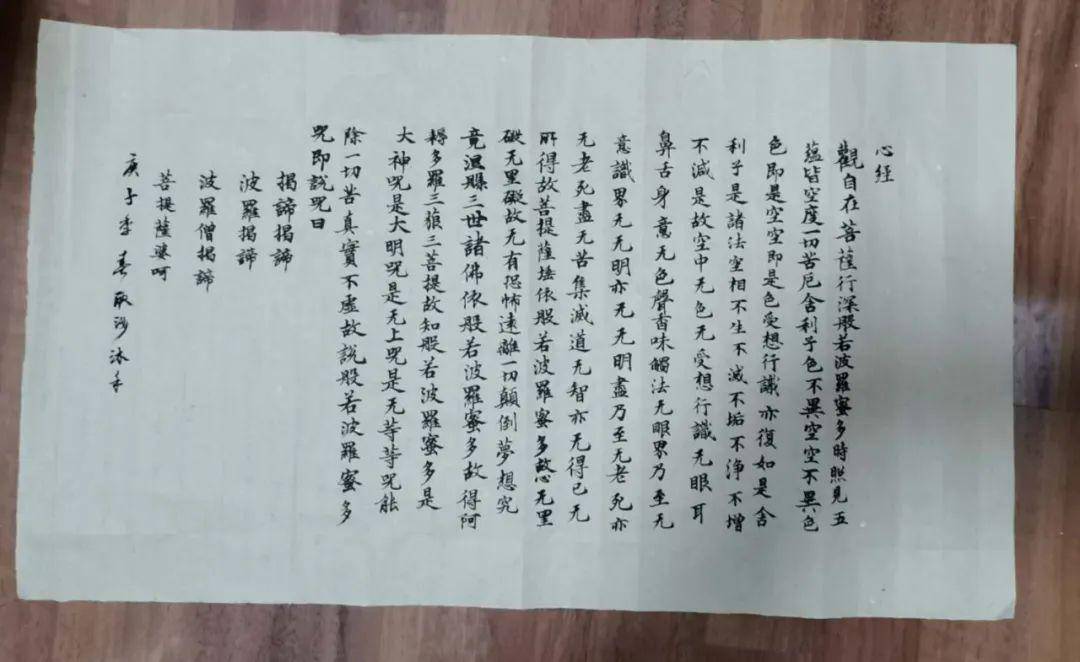 心经
觀自在菩薩行深般若波羅蜜多時照見五
蘊皆空度一切苦厄舍利子色不異空空不異色
色即是空空即是色受想行識亦復如是舍
利子是諸法空相不生不滅不垢不浄不增
不減是故空中无色无受想行識无眼耳
鼻舌身意无色聲香味觸法无眼界乃至无
意識界无无明亦无无明盡乃至无老死亦
无老死盡无苦集滅道无智亦无得已无
所得故菩提薩埵依般若波羅蜜多故心无罣
礙无罣礙故无有恐怖遠離一切顛倒夢想究
竟涅槃三世諸佛依般若波羅蜜多故得阿
耨多羅三藐三菩提故知般若波羅蜜多是
大神咒是大明咒是无上咒是无等等咒能
除一切苦真實不虛故說般若波羅蜜多
咒即說咒曰
揭諦揭諦
波羅揭諦
波羅僧揭諦
菩提薩婆呵
庚子季春